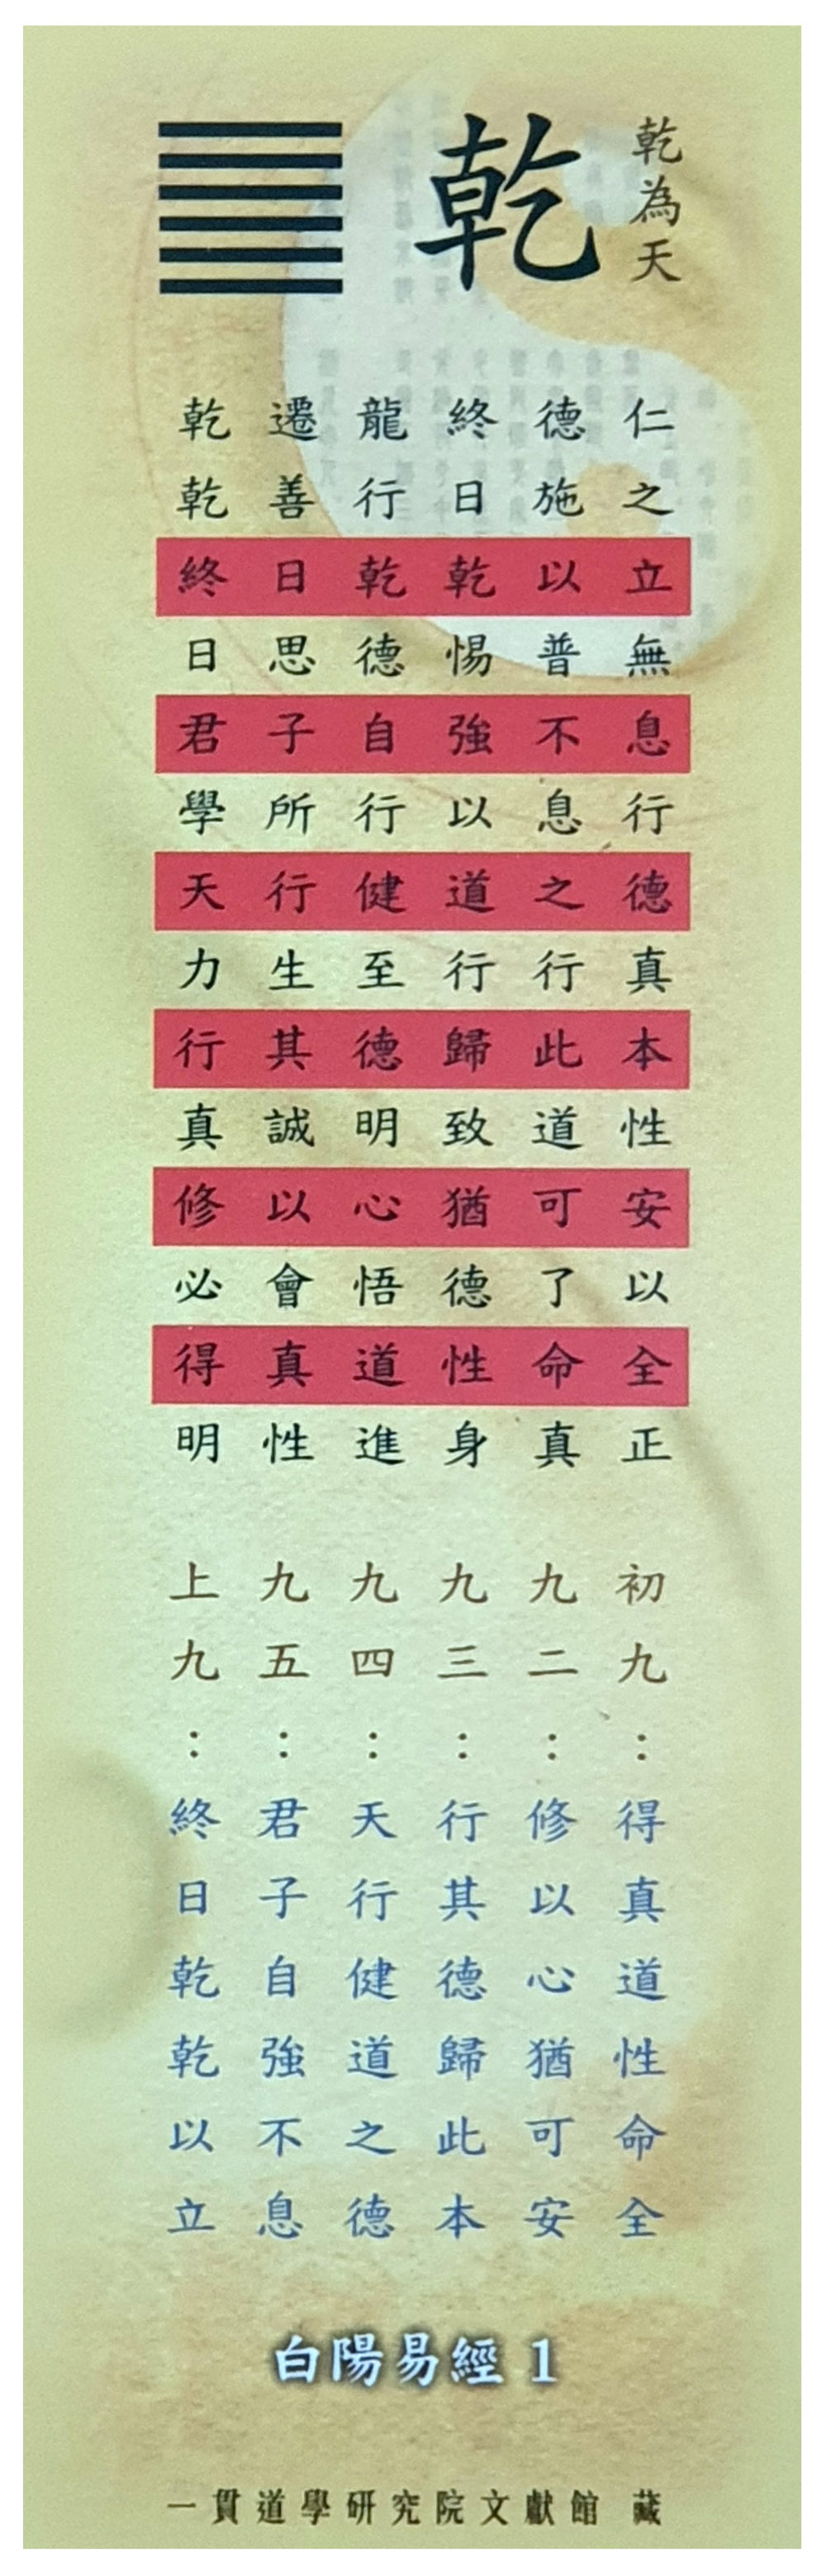 乾為天
乾
仁之立無息行德真本性安以全正
德施以普不息之行此道可了命真
終日乾惕強以道行歸致猶德性身
龍行乾德自行健至德明心悟道進
遷善日思子所行生其誠以會真性
乾乾終日君學天力行真修必得明
初九：得真道性命全
九二：修以心猶可安
九三：行其德歸此本
九四：天行健道之德
九五：君子自強不息
上九：終日乾乾以立
白陽易經 1
一貫道學研究院文獻館 藏